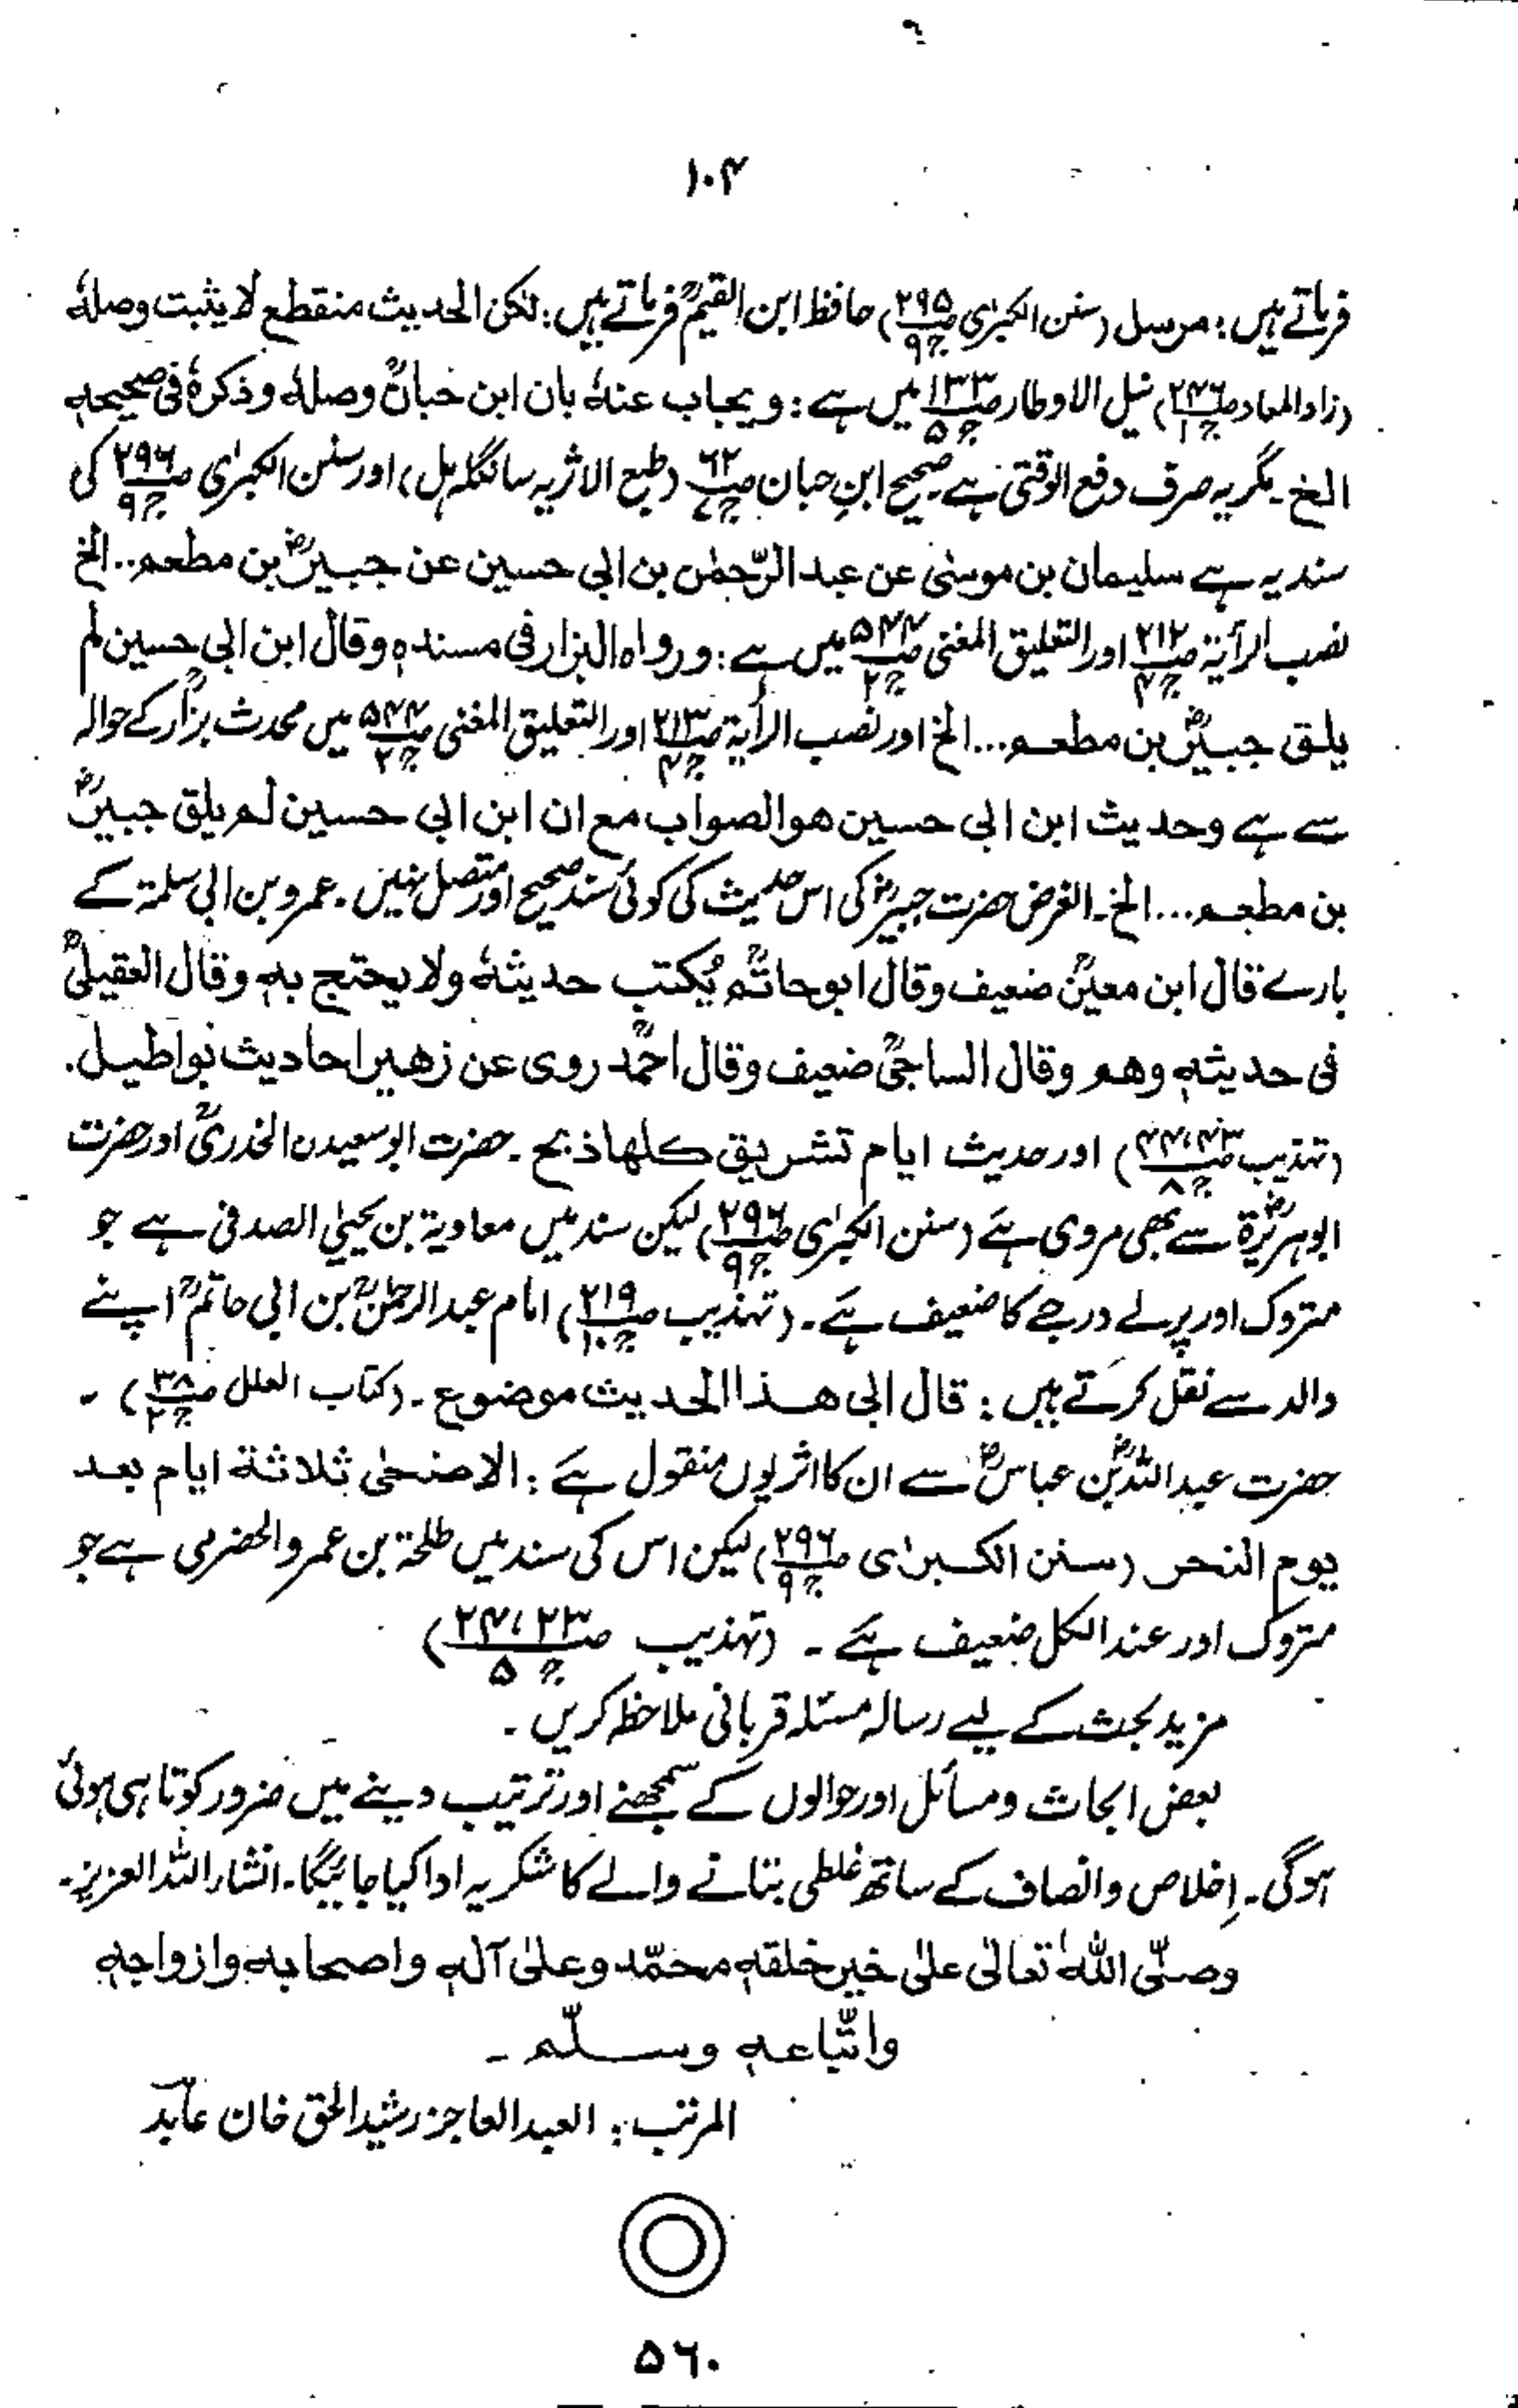 ۱۰۴
فرماتے ہیں: مرسل (سنن الکبرٰی ص۲۹۵ ج۹) حافظ ابن القیمؒ فرماتے ہیں: لکن الحدیث منقطع لا یثبت وصلہٗ
(زاد المعاد ص۲۴۶ ج۱) نیل الاوطار ص۱۳۳ ج۵ میں ہے: ویجاب عنہٗ بان ابن حبانؒ وصلہٗ وذکرہٗ فی صحیحہٖ
الخ۔ مگر یہ صرف دفع الوقتی ہے۔ صحیح ابنِ حبان ص۶۲ (طبع الاثریہ سانگلہ ہل) اور سنن الکبرٰی ص۲۹۶ ج۹ کی
سند یہ ہے سلیمان بن موسیٰ عن عبد الرّحمٰن بن ابی حسین عن جبیرؓ بن مطعم.. الخ
نصب الرأیۃ ص۲۱۲ ج۴ اور التعلیق المغنی ص۵۴۴ ج۲ میں ہے: ورواہ البزار فی مسندہٖ وقال ابن ابی حسین لم
یلق جبیرؓ بن مطعم... الخ اور نصب الرأیۃ ص۲۱۳ ج۴ اور التعلیق المغنی ص۵۴۴ ج۲ میں محدث بزارؒ کے حوالہ
سے ہے وحدیث ابن ابی حسین ھو الصواب مع ان ابن ابی حسین لم یلق جبیرؓ
بن مطعم... الخ۔ الغرض حضرت جبیرؓ کی اس حدیث کی کوئی سند صحیح اور متصل نہیں۔ عمرو بن ابی سلمۃ کے
بارے قال ابن معینؒ ضعیف وقال ابو حاتمؒ یُکتب حدیثہٗ ولا یحتج بہٖ وقال العقیلیؒ
فی حدیثہٖ وھم وقال الساجیؒ ضعیف وقال احمدؒ روی عن زھیر احادیث بواطیل.
(تہذیب ص۴۳، ۴۴ ج۸) اور حدیث ایام تشریق کلھا ذبح۔ حضرت ابو سعیدن الخدریؓ اور حضرت
ابوہریرؓۃ سے بھی مروی ہے (سنن الکبرٰی ص۲۹۶ ج۹) لیکن سند میں معاویۃ بن یحییٰ الصدفی ہے جو
متروک اور پرلے درجے کا ضعیف ہے۔ (تہذیب ص۲۱۹ ج۱۰) امام عبدالرحمٰنؒ بن ابی حاتمؒ اپنے
والد سے نقل کرتے ہیں: قال ابی ھذا الحدیث موضوع۔ (کتاب العلل ص۳۸ ج۲)۔
حضرت عبداللہؓ بن عباسؓ سے ان کا اثر یوں منقول ہے: الاضحٰی ثلاثۃ ایام بعد
یوم النحر (سنن الکبرٰی ص۲۹۶ ج۹) لیکن اس کی سند میں طلحۃ بن عمرو الحضرمی ہے جو
متروک اور عند الکل ضعیف ہے۔ (تہذیب ص۲۳، ۲۴ ج۵)
مزید بحث کے لیے رسالہ مسئلہ قربانی ملاحظہ کریں۔
بعض ابحاث و مسائل اور حوالوں کے سمجھنے اور ترتیب دینے میں ضرور کوتاہی ہوئی
ہوگی۔ اِخلاص و انصاف کے ساتھ غلطی بتانے والے کا شکریہ ادا کیا جائیگا۔ انشاء اللہ العزیز۔
وصلّی اللہُ تعالیٰ علیٰ خیر خلقہٖ محمّد وعلیٰ آلہٖ واصحابہٖ وازواجہٖ
واتّباعہٖ وسلّم۔
المرتب: العبد العاجز رشید الحق خان عابد
۵۶۰